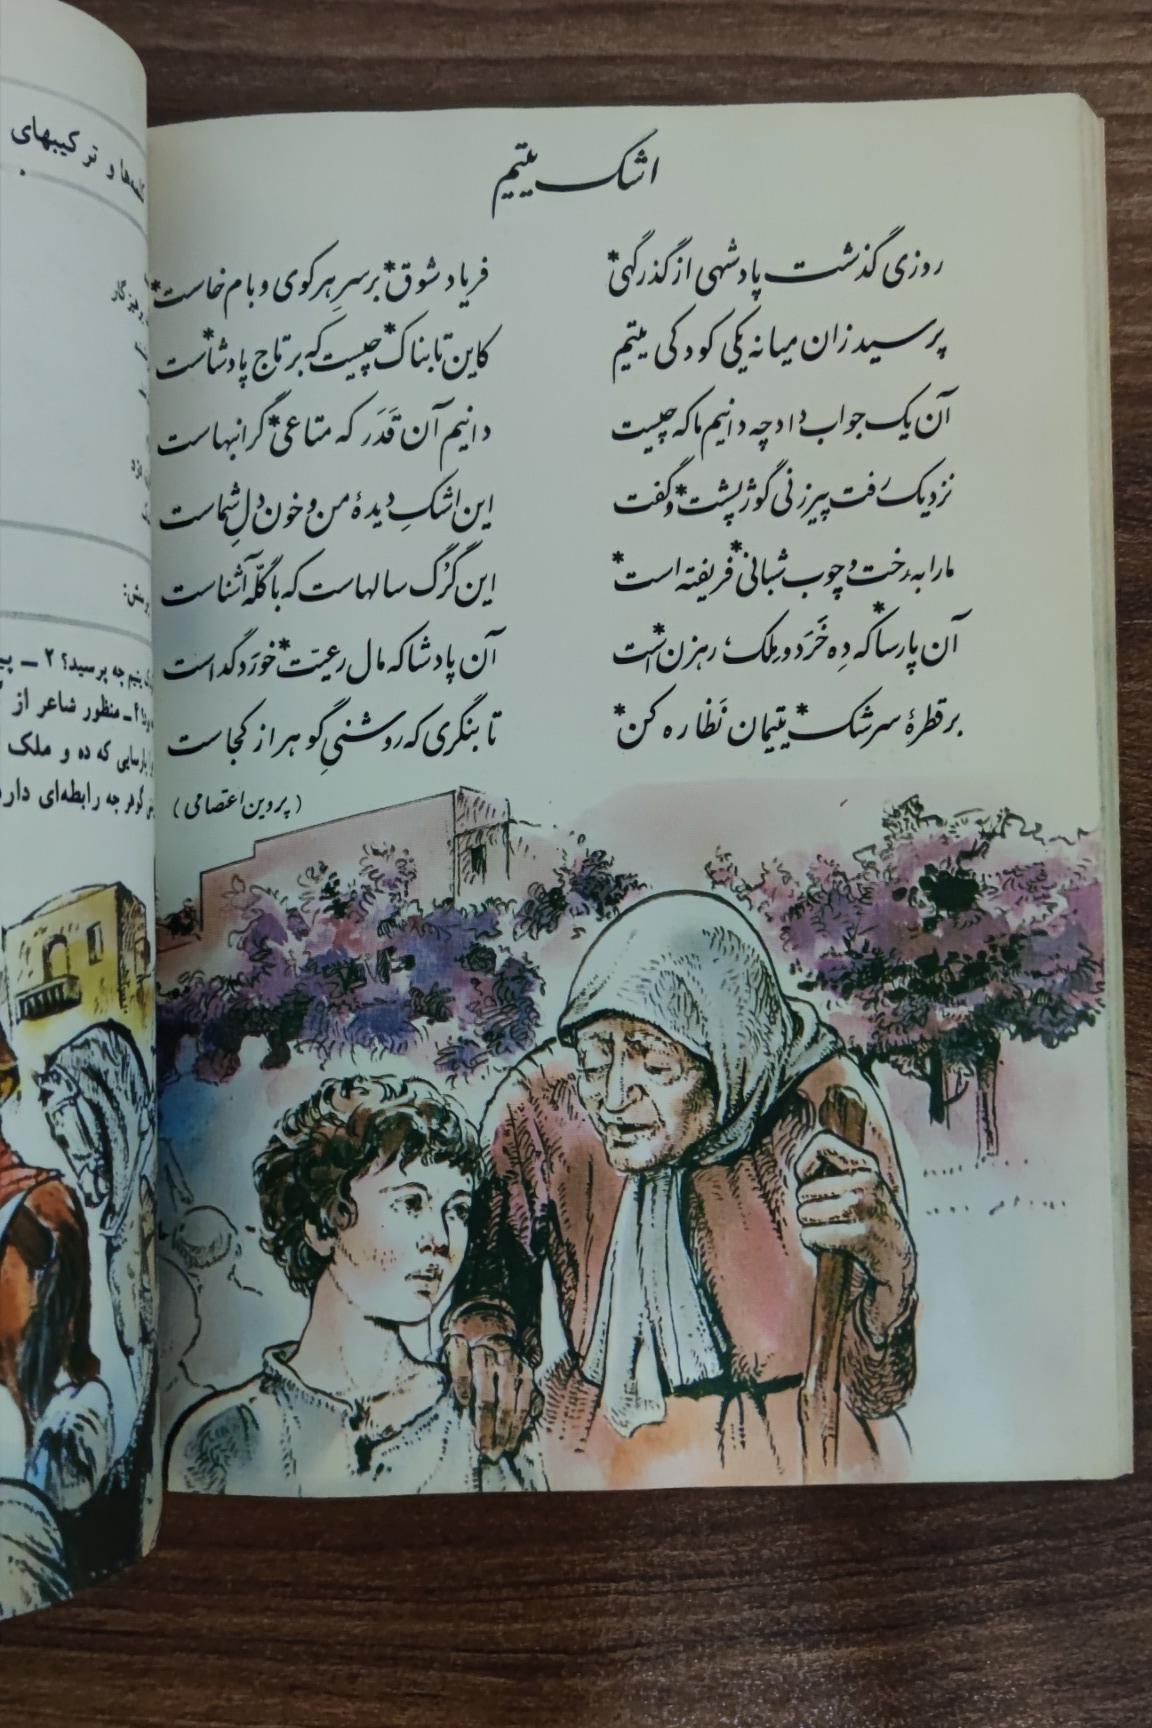 اشک یتیم
روزی گذشت پادشهی از گذرگهی* فریاد شوق* بر سرِ هر کوی و بام خاست*
پرسید زان میانه یکی کودکی یتیم کاین تابناک* چیست که بر تاج پادشاست*
آن یک جواب داد چه دانیم ما که چیست دانیم آن قَدَر که متاعی* گرانبهاست
نزدیک رفت پیرزنی گوژپشت* و گفت این اشکِ دیدهٔ من و خون دلِ شماست
ما را به رخت و چوب شبانی* فریفته است* این گرگ سالهاست که با گلّه آشناست
آن پارسا* که دِه خَرَد و مِلک، رهزن* است آن پادشا که مال رعیّت* خورَد گداست
بر قطرهٔ سرشک* یتیمان نَظاره کن* تا بنگری که روشنیِ گوهر از کجاست
(پروین اعتصامی)
کلمه‌ها و ترکیبهای
پرسش:
یتیم چه پرسید؟ ۲ ــ
۴ــ منظور شاعر از
پارسایی که ده و ملک
گوهر چه رابطه‌ای